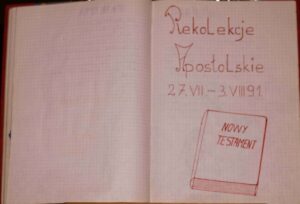 Rekolekcje
Apostolskie
27.VII. – 3.VIII 91.
NOWY
TESTAMENT